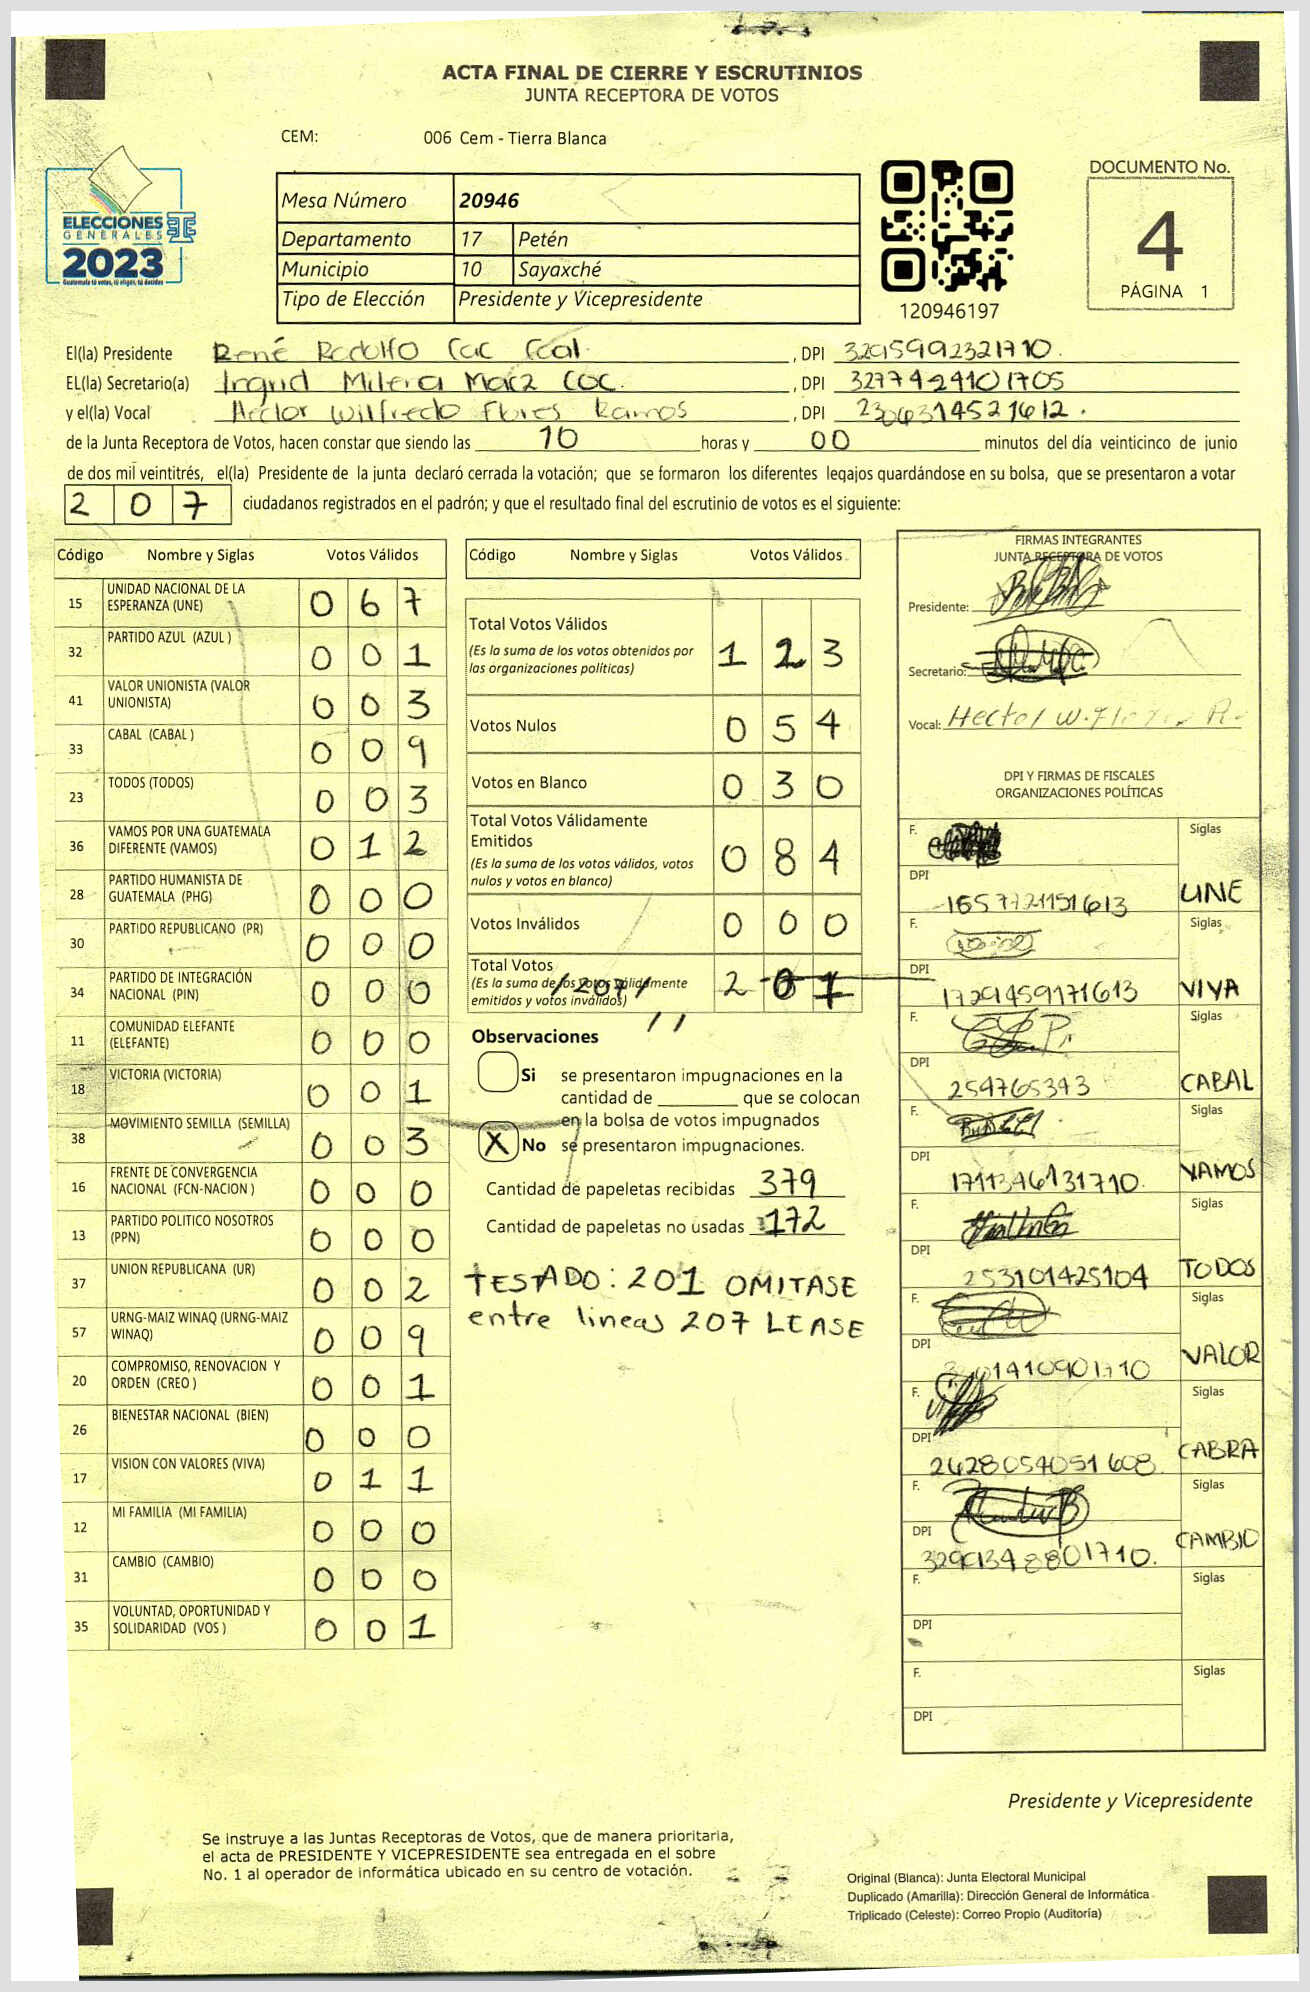 ACTA FINAL DE CIERRE Y ESCRUTINIOS
JUNTA RECEPTORA DE VOTOS
CEM: 006 Cem - Tierra Blanca
ELECCIONES
GENERALES
2023
Guatemala tú votas, tú eliges, tú decides
Mesa Número 20946
Departamento 17 Petén
Municipio 10 Sayaxché
Tipo de Elección Presidente y Vicepresidente
120946197
DOCUMENTO No.
4
PÁGINA 1
El(la) Presidente René Rodolfo Cac , DPI 3295992321710.
EL(la) Secretario(a) Ingrid Coc. , DPI 3277424101705
y el(la) Vocal Hector Wilfredo Flores Ramos , DPI 2306314521612.
de la Junta Receptora de Votos, hacen constar que siendo las 10 horas y 00 minutos del día veinticinco de junio
de dos mil veintitrés, el(la) Presidente de la junta declaró cerrada la votación; que se formaron los diferentes legajos quardándose en su bolsa, que se presentaron a votar
2 0 7 ciudadanos registrados en el padrón; y que el resultado final del escrutinio de votos es el siguiente:
Código Nombre y Siglas Votos Válidos
15 UNIDAD NACIONAL DE LA ESPERANZA (UNE) 0 6 7
32 PARTIDO AZUL (AZUL ) 0 0 1
41 VALOR UNIONISTA (VALOR UNIONISTA) 0 0 3
33 CABAL (CABAL ) 0 0 9
23 TODOS (TODOS) 0 0 3
36 VAMOS POR UNA GUATEMALA DIFERENTE (VAMOS) 0 1 2
28 PARTIDO HUMANISTA DE GUATEMALA (PHG) 0 0 0
30 PARTIDO REPUBLICANO (PR) 0 0 0
34 PARTIDO DE INTEGRACIÓN NACIONAL (PIN) 0 0 0
11 COMUNIDAD ELEFANTE (ELEFANTE) 0 0 0
18 VICTORIA (VICTORIA) 0 0 1
38 MOVIMIENTO SEMILLA (SEMILLA) 0 0 3
16 FRENTE DE CONVERGENCIA NACIONAL (FCN-NACION ) 0 0 0
13 PARTIDO POLITICO NOSOTROS (PPN) 0 0 0
37 UNION REPUBLICANA (UR) 0 0 2
57 URNG-MAIZ WINAQ (URNG-MAIZ WINAQ) 0 0 9
20 COMPROMISO, RENOVACION Y ORDEN (CREO ) 0 0 1
26 BIENESTAR NACIONAL (BIEN) 0 0 0
17 VISION CON VALORES (VIVA) 0 1 1
12 MI FAMILIA (MI FAMILIA) 0 0 0
31 CAMBIO (CAMBIO) 0 0 0
35 VOLUNTAD, OPORTUNIDAD Y SOLIDARIDAD (VOS ) 0 0 1
Código Nombre y Siglas Votos Válidos
Total Votos Válidos
(Es la suma de los votos obtenidos por
las organizaciones políticas) 1 2 3
Votos Nulos 0 5 4
Votos en Blanco 0 3 0
Total Votos Válidamente
Emitidos
(Es la suma de los votos válidos, votos
nulos y votos en blanco) 0 8 4
Votos Inválidos 0 0 0
Total Votos
(Es la suma de los votos válidamente
emitidos y votos inválidos) /207/ 2 0 1
Observaciones
Si se presentaron impugnaciones en la
cantidad de ________ que se colocan
en la bolsa de votos impugnados
X No se presentaron impugnaciones.
Cantidad de papeletas recibidas 379
Cantidad de papeletas no usadas 172
TESTADO: 201 OMITASE
entre lineas 207 LEASE
FIRMAS INTEGRANTES
JUNTA RECEPTORA DE VOTOS
Presidente:
Secretario:
Vocal: Hector W. Flores R.
DPI Y FIRMAS DE FISCALES
ORGANIZACIONES POLÍTICAS
F. Siglas
DPI UNE
F. Siglas
DPI 1729459171613 VIVA
F. Siglas
DPI 254765393 CABAL
F. Siglas
DPI 1711346131710. VAMOS
F. Siglas
DPI 253101425104 TODOS
F. Siglas
DPI VALOR
F. Siglas
DPI 2428054051608. CABRA
F. Siglas
DPI CAMBIO
F. Siglas
DPI
F. Siglas
DPI
Presidente y Vicepresidente
Se instruye a las Juntas Receptoras de Votos, que de manera prioritaria,
el acta de PRESIDENTE Y VICEPRESIDENTE sea entregada en el sobre
No. 1 al operador de informática ubicado en su centro de votación.
Original (Blanca): Junta Electoral Municipal
Duplicado (Amarilla): Dirección General de Informática
Triplicado (Celeste): Correo Propio (Auditoría)